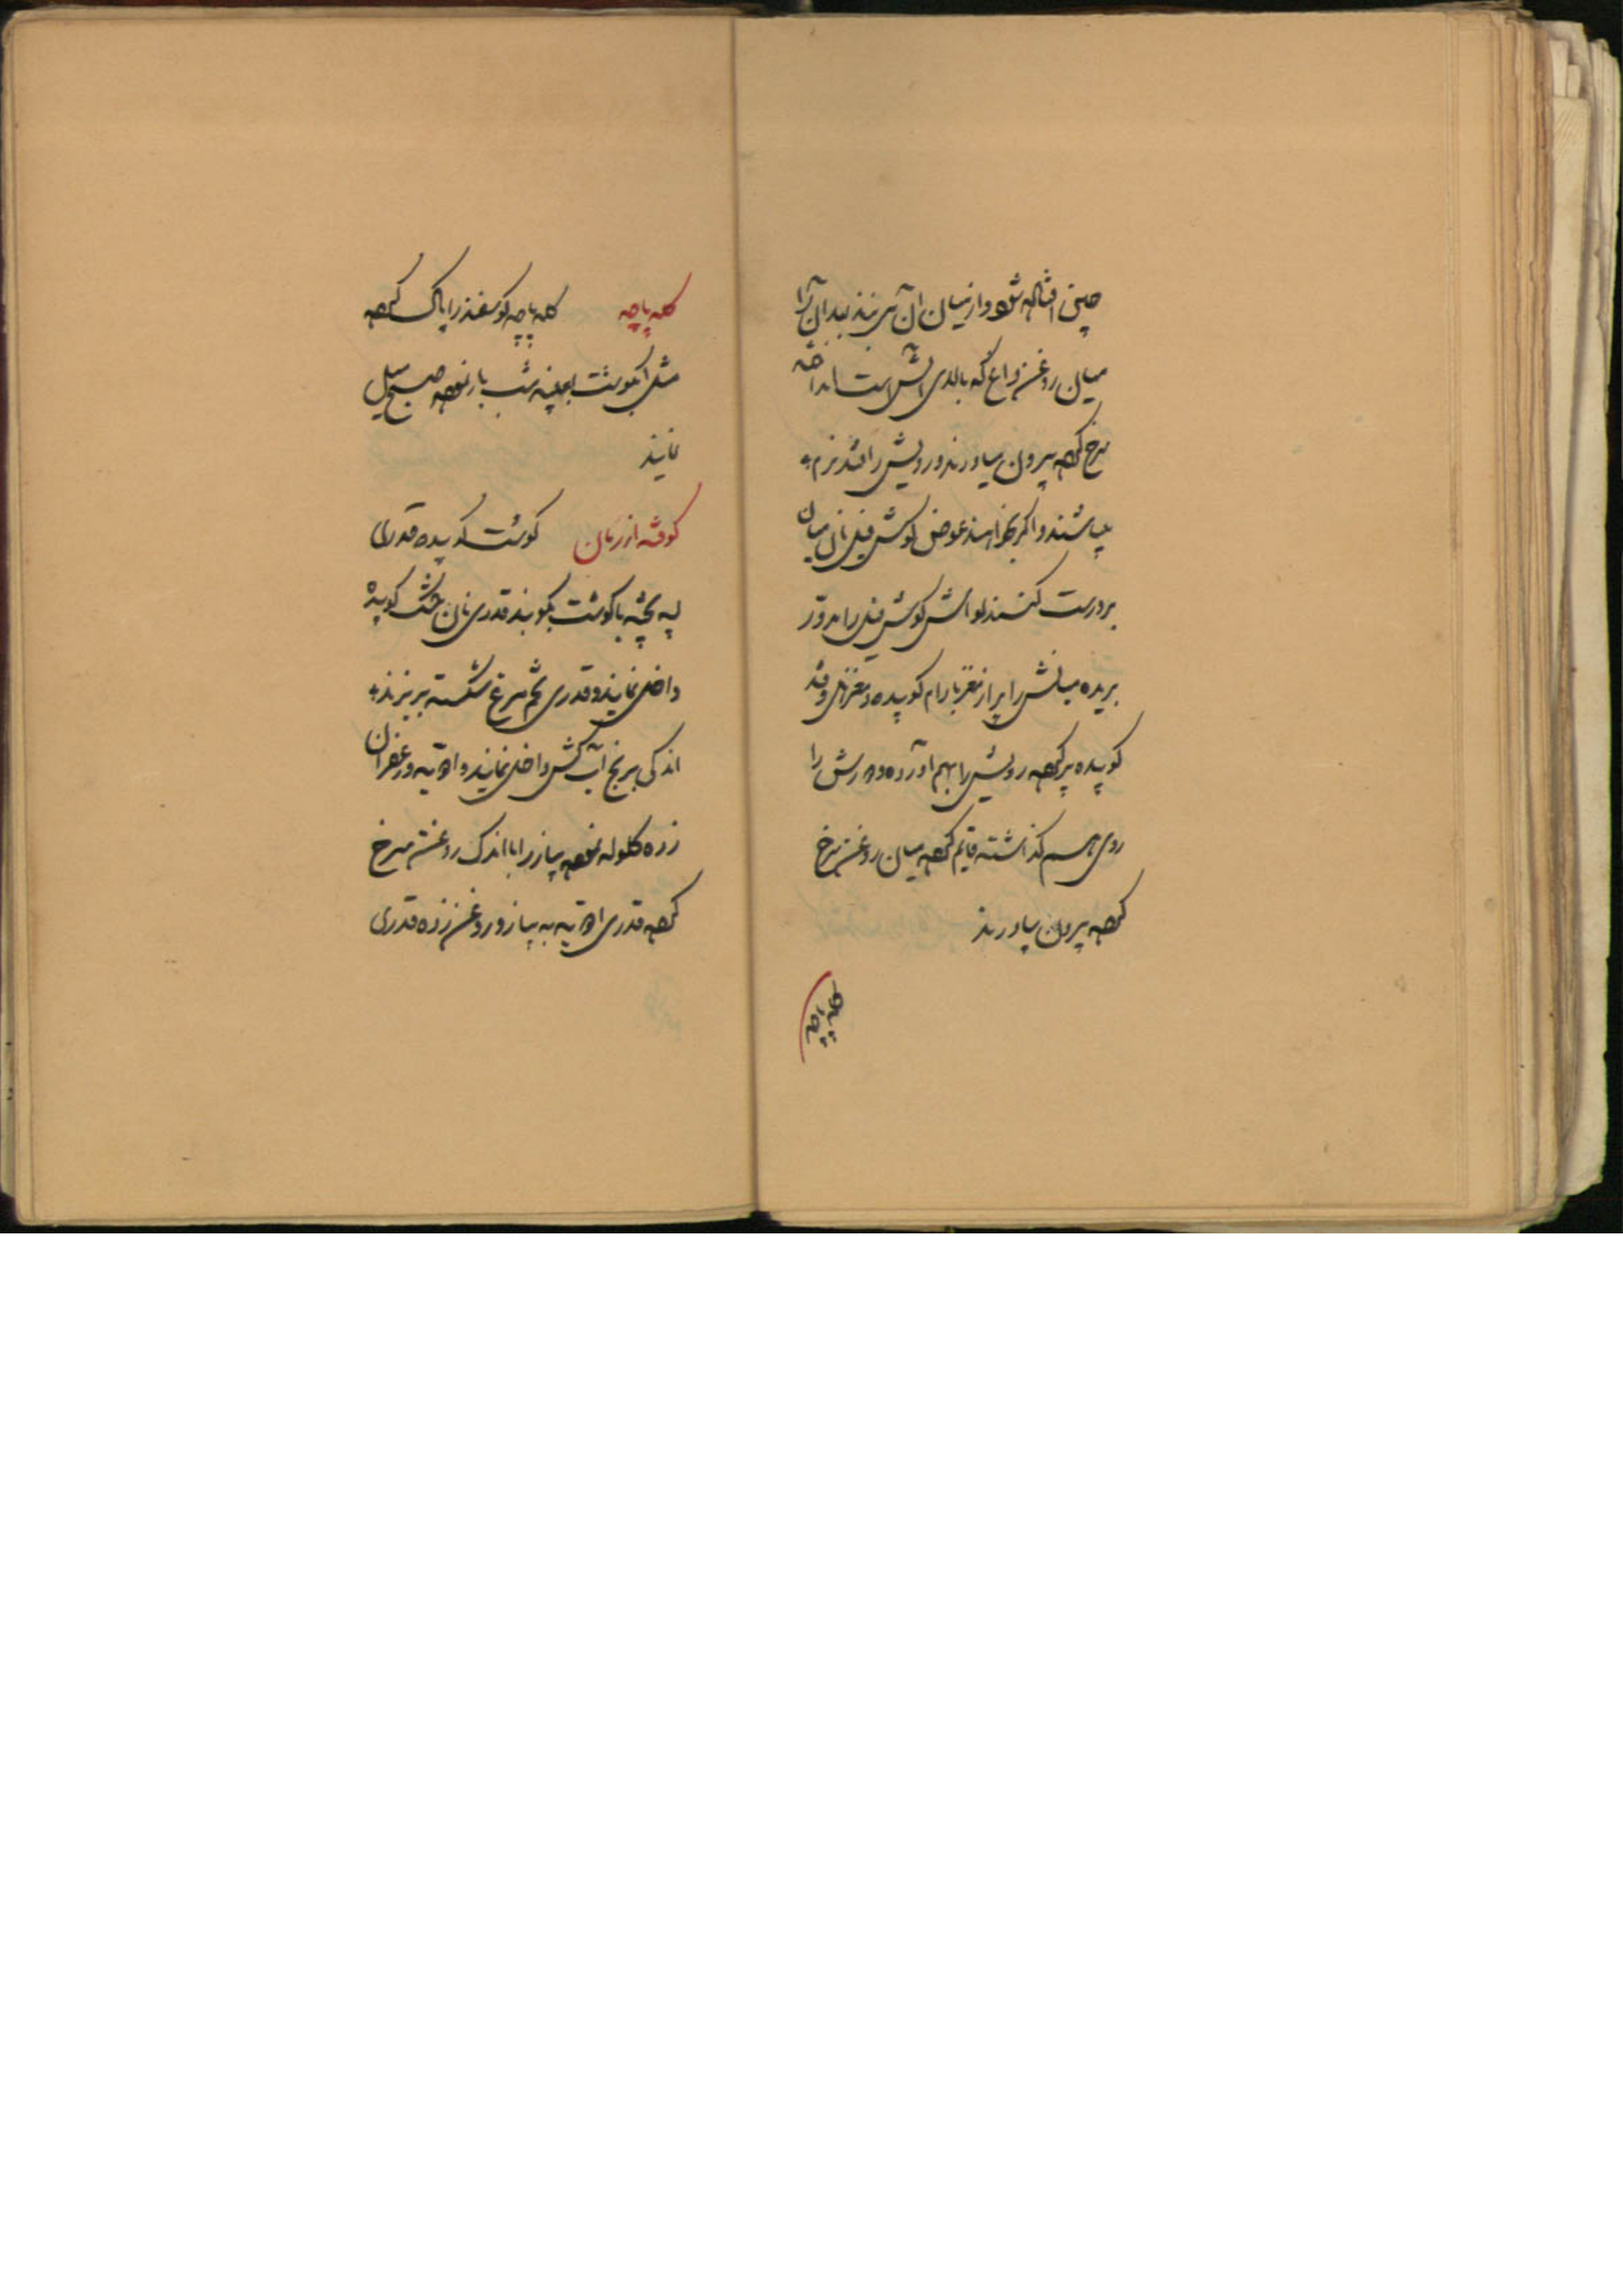 میان روغن داغ که بالای آتش است انداخته
سرخ کرده بیرون بیاورند و رویش را قند نرم
بپاشند و اگر بخواهند عوض گوش فیل نان میان
پر درست کنند لواش گوش فیل را مدور
بریده میانش را پر از مغز بادام کوبیده و قند
کوبیده پر کرده رویش را بهم آورده دورش را
روی هم گذاشته قایم کرده میان روغن سرخ
کرده بیرون بیاورند
کله پاچه کله پاچه گوسفند را پاک کرده
مثل آبگوشت بعینه شب بار نموده صبح میل
نمایند
کوفته گوشت کوبیده قدری
لپه پخته با گوشت بکوبند قدری نان خشک کوبیده
داخل نمایند و قدری تخم مرغ شکسته بریزند
اندکی برنج آب کش داخل نمایند و ادویه و زعفران
زده گلوله نموده پیاز را با اندک روغن سرخ
کرده قدری ادویه به پیاز و روغن زده قدری